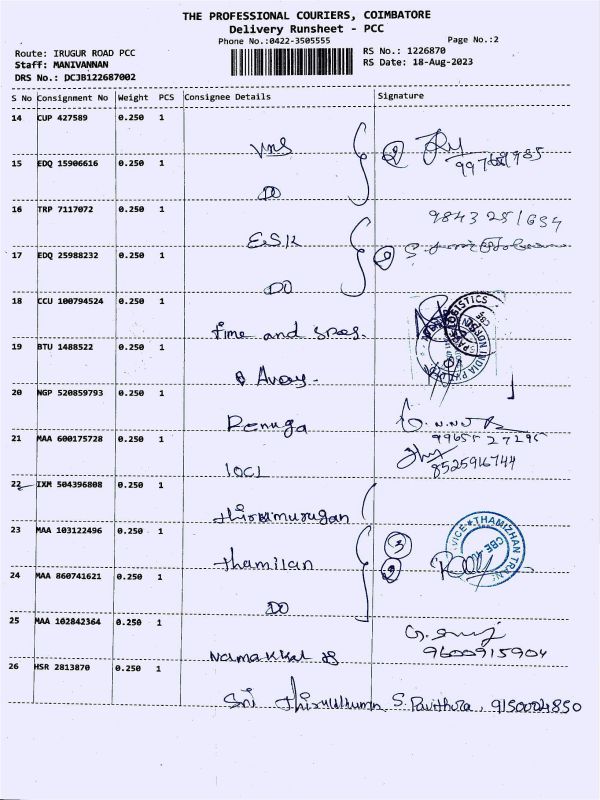 THE PROFESSIONAL COURIERS, COIMBATORE
Delivery Runsheet - PCC
Phone No.:0422-3505555
Page No.:2
Route: IRUGUR ROAD PCC
RS No.: 1226870
Staff: MANIVANNAN
RS Date: 18-Aug-2023
DRS No.: DCJB122687002
S No Consignment No Weight PCS Consignee Details Signature
14 CUP 427589 0.250 1
VMS
15 EDQ 15906616 0.250 1
DO
16 TRP 7117072 0.250 1
9843 251654
ESK
17 EDQ 25988232 0.250 1
DO
18 CCU 100794524 0.250 1
time and
19 BTU 1488522 0.250 1
20 NGP 520859793 0.250 1
Renuga
9965527295
21 MAA 600175728 0.250 1
IOCL
8525916744
22 IXM 504396808 0.250 1
thirumurugan
23 MAA 103122496 0.250 1
thamilan
THAMIZHAN TRAN
24 MAA 860741621 0.250 1
DO
25 MAA 102842364 0.250 1
Namakkal
9600915904
26 HSR 2813870 0.250 1
Sri S. Pavithra, 9150004850